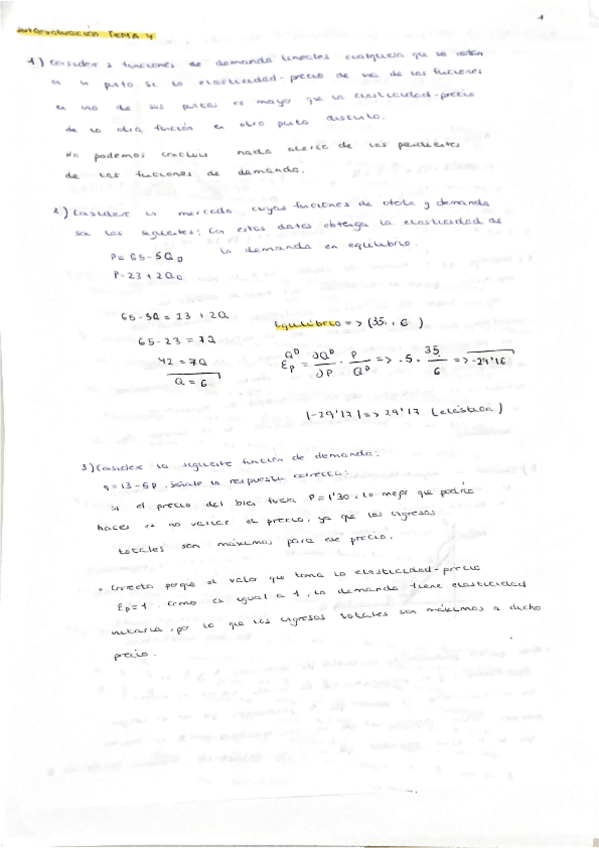 autoevaluación TEMA 4
1) Considere 2 funciones de demanda lineales cualquiera que se cortan
en un punto si la elasticidad-precio de una de las funciones
en uno de sus puntos es mayor que la elasticidad-precio
de la otra función en otro punto distinto.
No podemos concluir nada acerca de las pendientes
de las funciones de demanda.
2) Considere un mercado cuyas funciones de oferta y demanda
son las siguientes: Con estos datos obtenga la elasticidad de
P= 65-5QD la demanda en equilibrio.
P= 23+2Q
65-5Q = 23 + 2Q
65-23 = 7Q
42 = 7Q
Q = 6
Equilibrio => (35, 6)
QD Ep = ∂QD/∂P · P/QD => -5 · 35/6 => -29'16
|-29'17| => 29'17 (elástica)
3) Considere la siguiente función de demanda:
q = 13-5P. Señale la respuesta correcta:
si el precio del bien fuera P=1'30, lo mejor que podría
hacer es no variar el precio, ya que los ingresos
totales son máximos para ese precio.
• Correcta porque el valor que toma la elasticidad-precio
Ep=1. Como es igual a 1, la demanda tiene elasticidad
unitaria, por lo que los ingresos totales son máximos a dicho
precio.